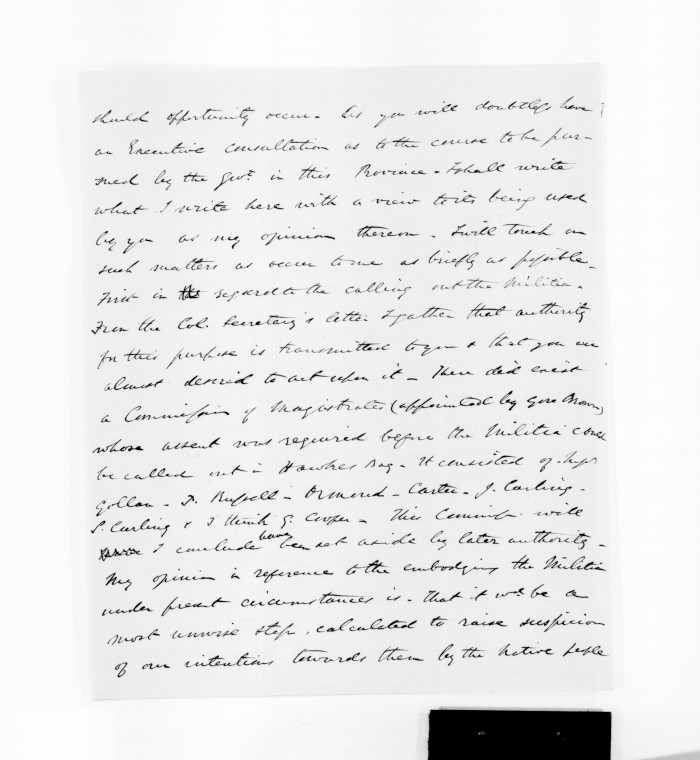 should opportunity occur. As you will doubtless have
an Executive consultation as to the course to be pur-
sued by the Govt. in this Province - I shall write
what I write here with a view to its being used
by you as my opinion thereon. I will touch on
such matters as occur to me as briefly as possible -
First in regard to the calling out the Militia.
From the Col. Secretary's letter I gather that authority
for this purpose is transmitted to you & that you are
almost desired to act upon it - There did exist
a Commission of Magistrates (appointed by Gore Brown)
whose assent was required before the Militia could
be called out in Hawkes Bay - It consisted of
Gollan - Russell - Ormond - Carter - J. Curling -
S. Curling & I think G. Cooper - This Commissn. will
I conclude have been set aside by later authority -
My opinion in reference to the embodying the Militia
under present circumstances is - that it wd. be a
most unwise step, calculated to raise suspicion
of our intentions towards them by the Native people